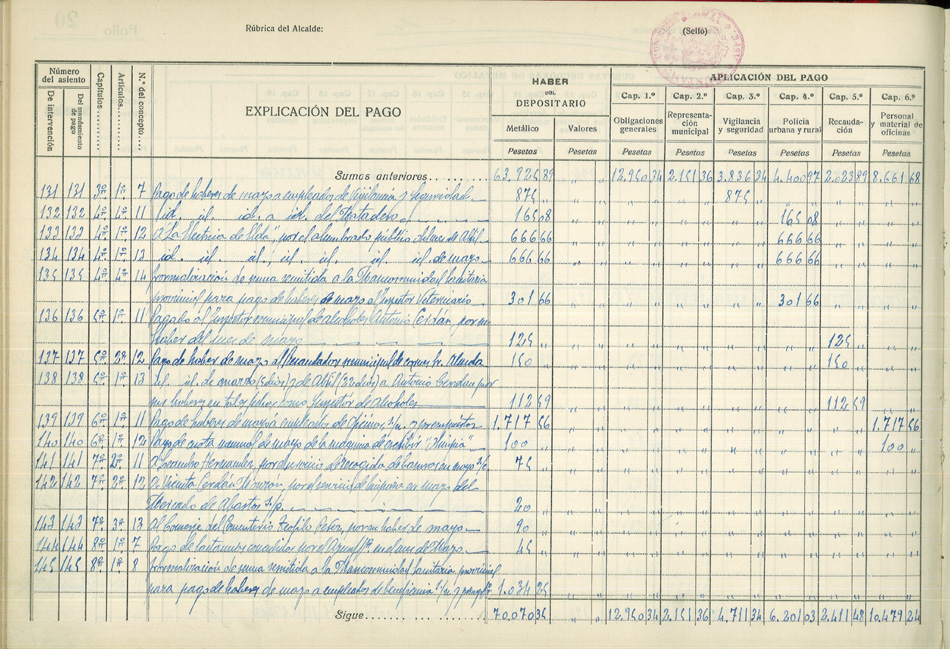 Folio 20
Rúbrica del Alcalde: (Sello)
Número del asiento Capítulos Artículos N.º del concepto EXPLICACIÓN DEL PAGO HABER DEL DEPOSITARIO APLICACIÓN DEL PAGO
De intervención Del mandamiento de pago Metálico Valores Cap. 1.º Obligaciones generales Cap. 2.º Representación municipal Cap. 3.º Vigilancia y seguridad Cap. 4.º Policía urbana y rural Cap. 5.º Recaudación Cap. 6.º Personal y material de oficinas
Pesetas Pesetas Pesetas Pesetas Pesetas Pesetas Pesetas Pesetas
Sumas anteriores 12.950 34 2.151 36 3.836 34 4.400 97 2.023 89 8.661 68
131 131 3º 1º 7 Pago de haberes de mayo a empleados de Vigilancia y seguridad 875 875
132 132 4º 1º 11 id. id. id. a id. del 165 08 165 08
133 133 4º 1º 12 A "La Eléctrica de Elda", por el alumbrado público del mes de Abril 666 66 666 66
134 134 4º 1º 13 id. id. id. id. id. id. de mayo 666 66 666 66
135 135 4º 1º 14 Formalización de suma remitida a la Mancomunidad Sanitaria
provincial para pago de haberes de mayo al Inspector Veterinario 301 66 301 66
136 136 5º 1º 11 Pagado al Inspector municipal de alcoholes Antonio Cerdán por su
haber del mes de mayo 125 125
137 137 5º 2º 12 Pago de haber de mayo al Recaudador municipal 150 150
138 138 5º 1º 13 id. id. de marzo y de Abril a Antonio Cerdán por
sus haberes en tal fecha como Inspector de Alcoholes 112 59 112 59
139 139 6º 1º 11 Pago de haberes de mayo a empleados de Oficinas 1.717 56 1.717 56
140 140 6º 1º 12 Pago de cuota mensual de mayo de la máquina de escribir "Olimpia" 100 100
141 141 7º 2º 11 A Leandro Hernández, por el servicio de recogida de basuras en mayo 75
142 142 7º 2º 12 A Vicenta Cerdán por el servicio de limpieza en mayo del
Mercado de Abastos 20
143 143 7º 3º 13 Al Conserje del Cementerio por su haber de mayo 90
144 144 8º 1º 7 Pago de 45
145 145 8º 1º 8 Formalización de suma remitida a la Mancomunidad Sanitaria provincial
para pago de haberes de mayo a empleados de beneficencia 1.034 25
Sigue 70.070 35 12.950 34 2.151 36 4.711 34 6.201 03 2.411 48 10.479 24